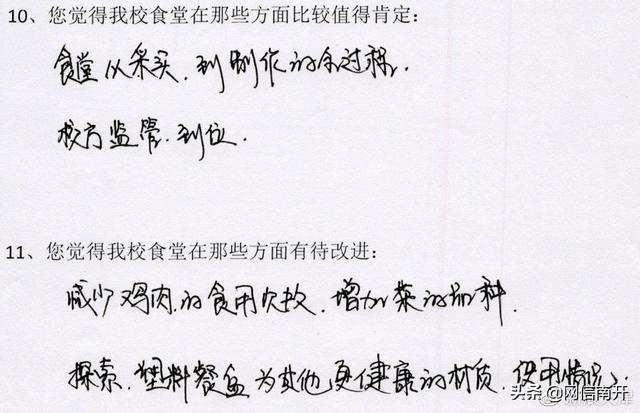 10、您觉得我校食堂在那些方面比较值得肯定：
食堂从采买、到制作的全过程、
校方监管、到位.
11、您觉得我校食堂在那些方面有待改进：
减少鸡肉的食用次数、增加菜的品种.
探索、塑料餐盒为其他更健康的材质、使用情况、
头条 @网信南开